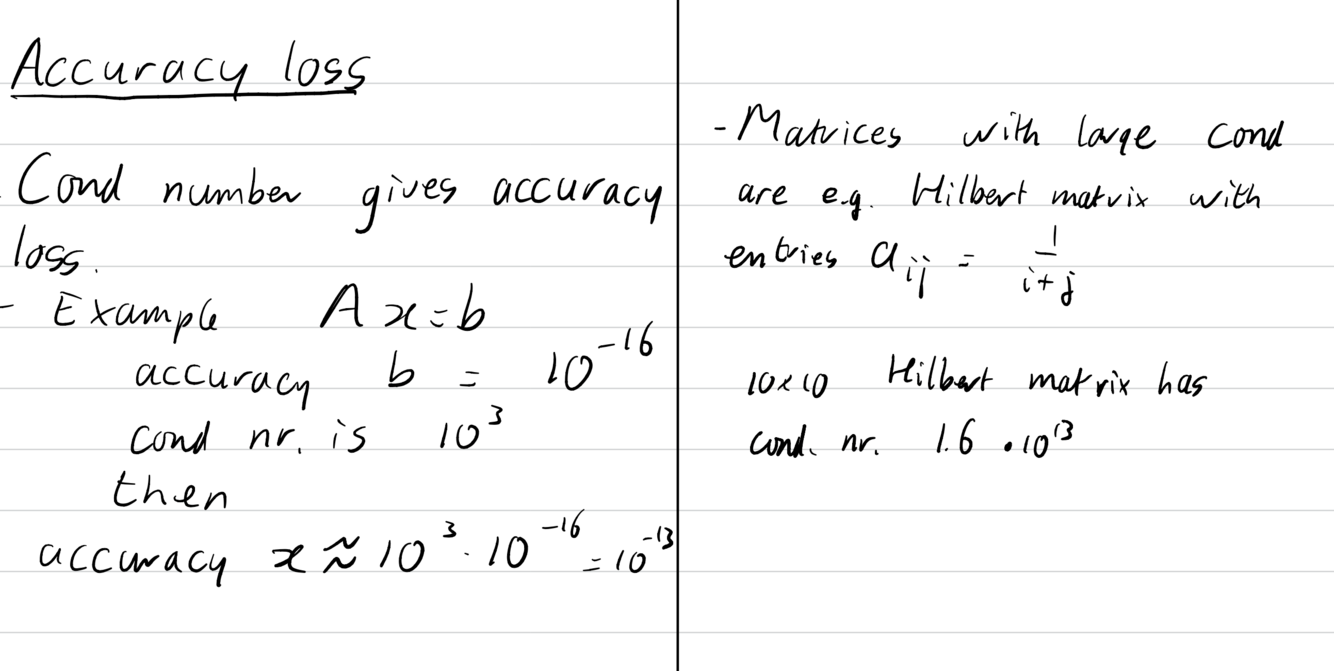 Accuracy loss
Cond number gives accuracy
loss.
- Example Ax=b
accuracy b = 10^-16
cond nr. is 10^3
then
accuracy x ≈ 10^3 · 10^-16 = 10^-13
- Matrices with large cond
are e.g. Hilbert matrix with
entries a_ij = 1/(i+j)
10×10 Hilbert matrix has
cond. nr. 1.6 · 10^13